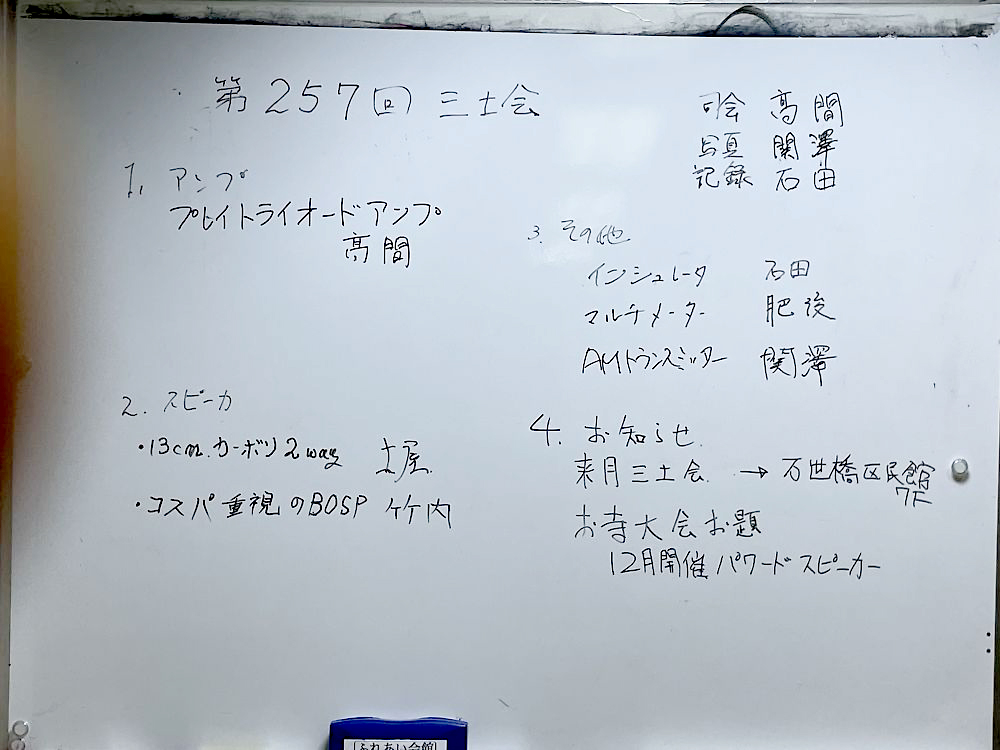 第257回 三土会
司会 高間
写真 関澤
記録 石田
1. アンプ
プレイトライオードアンプ
高間
2. スピーカ
・13cm.カーボリ2way 土屋.
・コスパ重視のBOSP 竹内
3. その他
インシュレータ 石田
マルチメーター 肥後
AMトランスミッター 関澤
4. お知らせ
来月三土会 → 万世橋区民館
7F
お寺大会お題
12月開催 パワードスピーカー
ふれあい会館